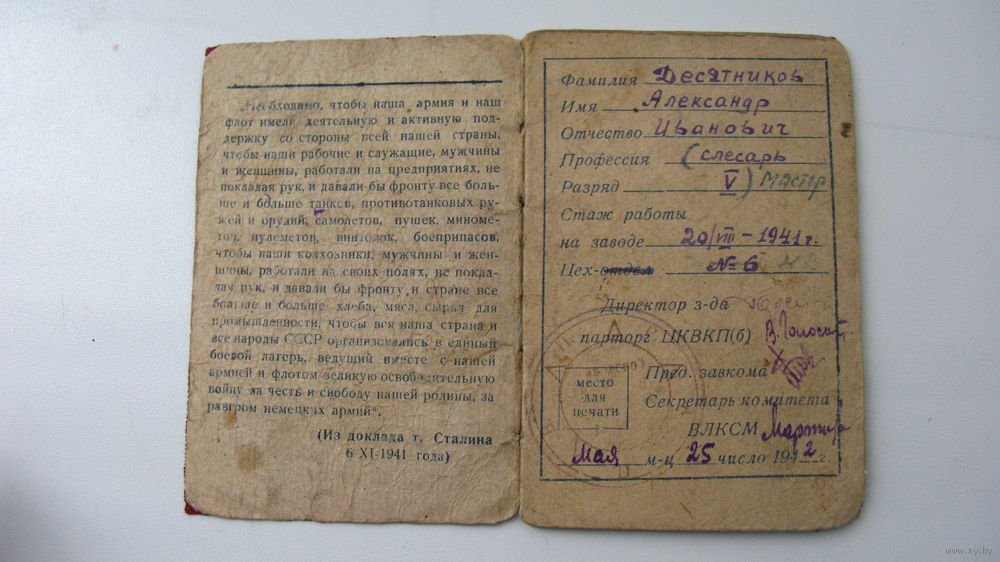 „Необходимо, чтобы наша армия и наш
флот имели деятельную и активную под-
держку со стороны всей нашей страны,
чтобы наши рабочие и служащие, мужчины
и женщины, работали на предприятиях, не
покладая рук, и давали бы фронту все боль-
ше и больше танков, противотанковых ру-
жей и орудий, самолетов, пушек, миноме-
тов, пулеметов, винтовок, боеприпасов,
чтобы наши колхозники, мужчины и жен-
щины, работали на своих полях, не покла-
дая рук, и давали бы фронту и стране все
больше и больше хлеба, мяса, сырья для
промышленности, чтобы вся наша страна и
все народы СССР организовались в единый
боевой лагерь, ведущий вместе с нашей
армией и флотом великую освободительную
войну за честь и свободу нашей родины, за
разгром немецких армий“.
(Из доклада т. Сталина
6 XI-1941 года)
Фамилия Десятников
Имя Александр
Отчество Иванович
Профессия (слесарь
Разряд V) мастер
Стаж работы
на заводе 20/VIII – 1941 г.
Цех-отдел № 6
Директор з-да
парторг ЦКВКП(б)
Пред. завкома
место
для
печати
Секретарь комитета
ВЛКСМ
Мая м-ц 25 число 1942 г.
www.ay.by